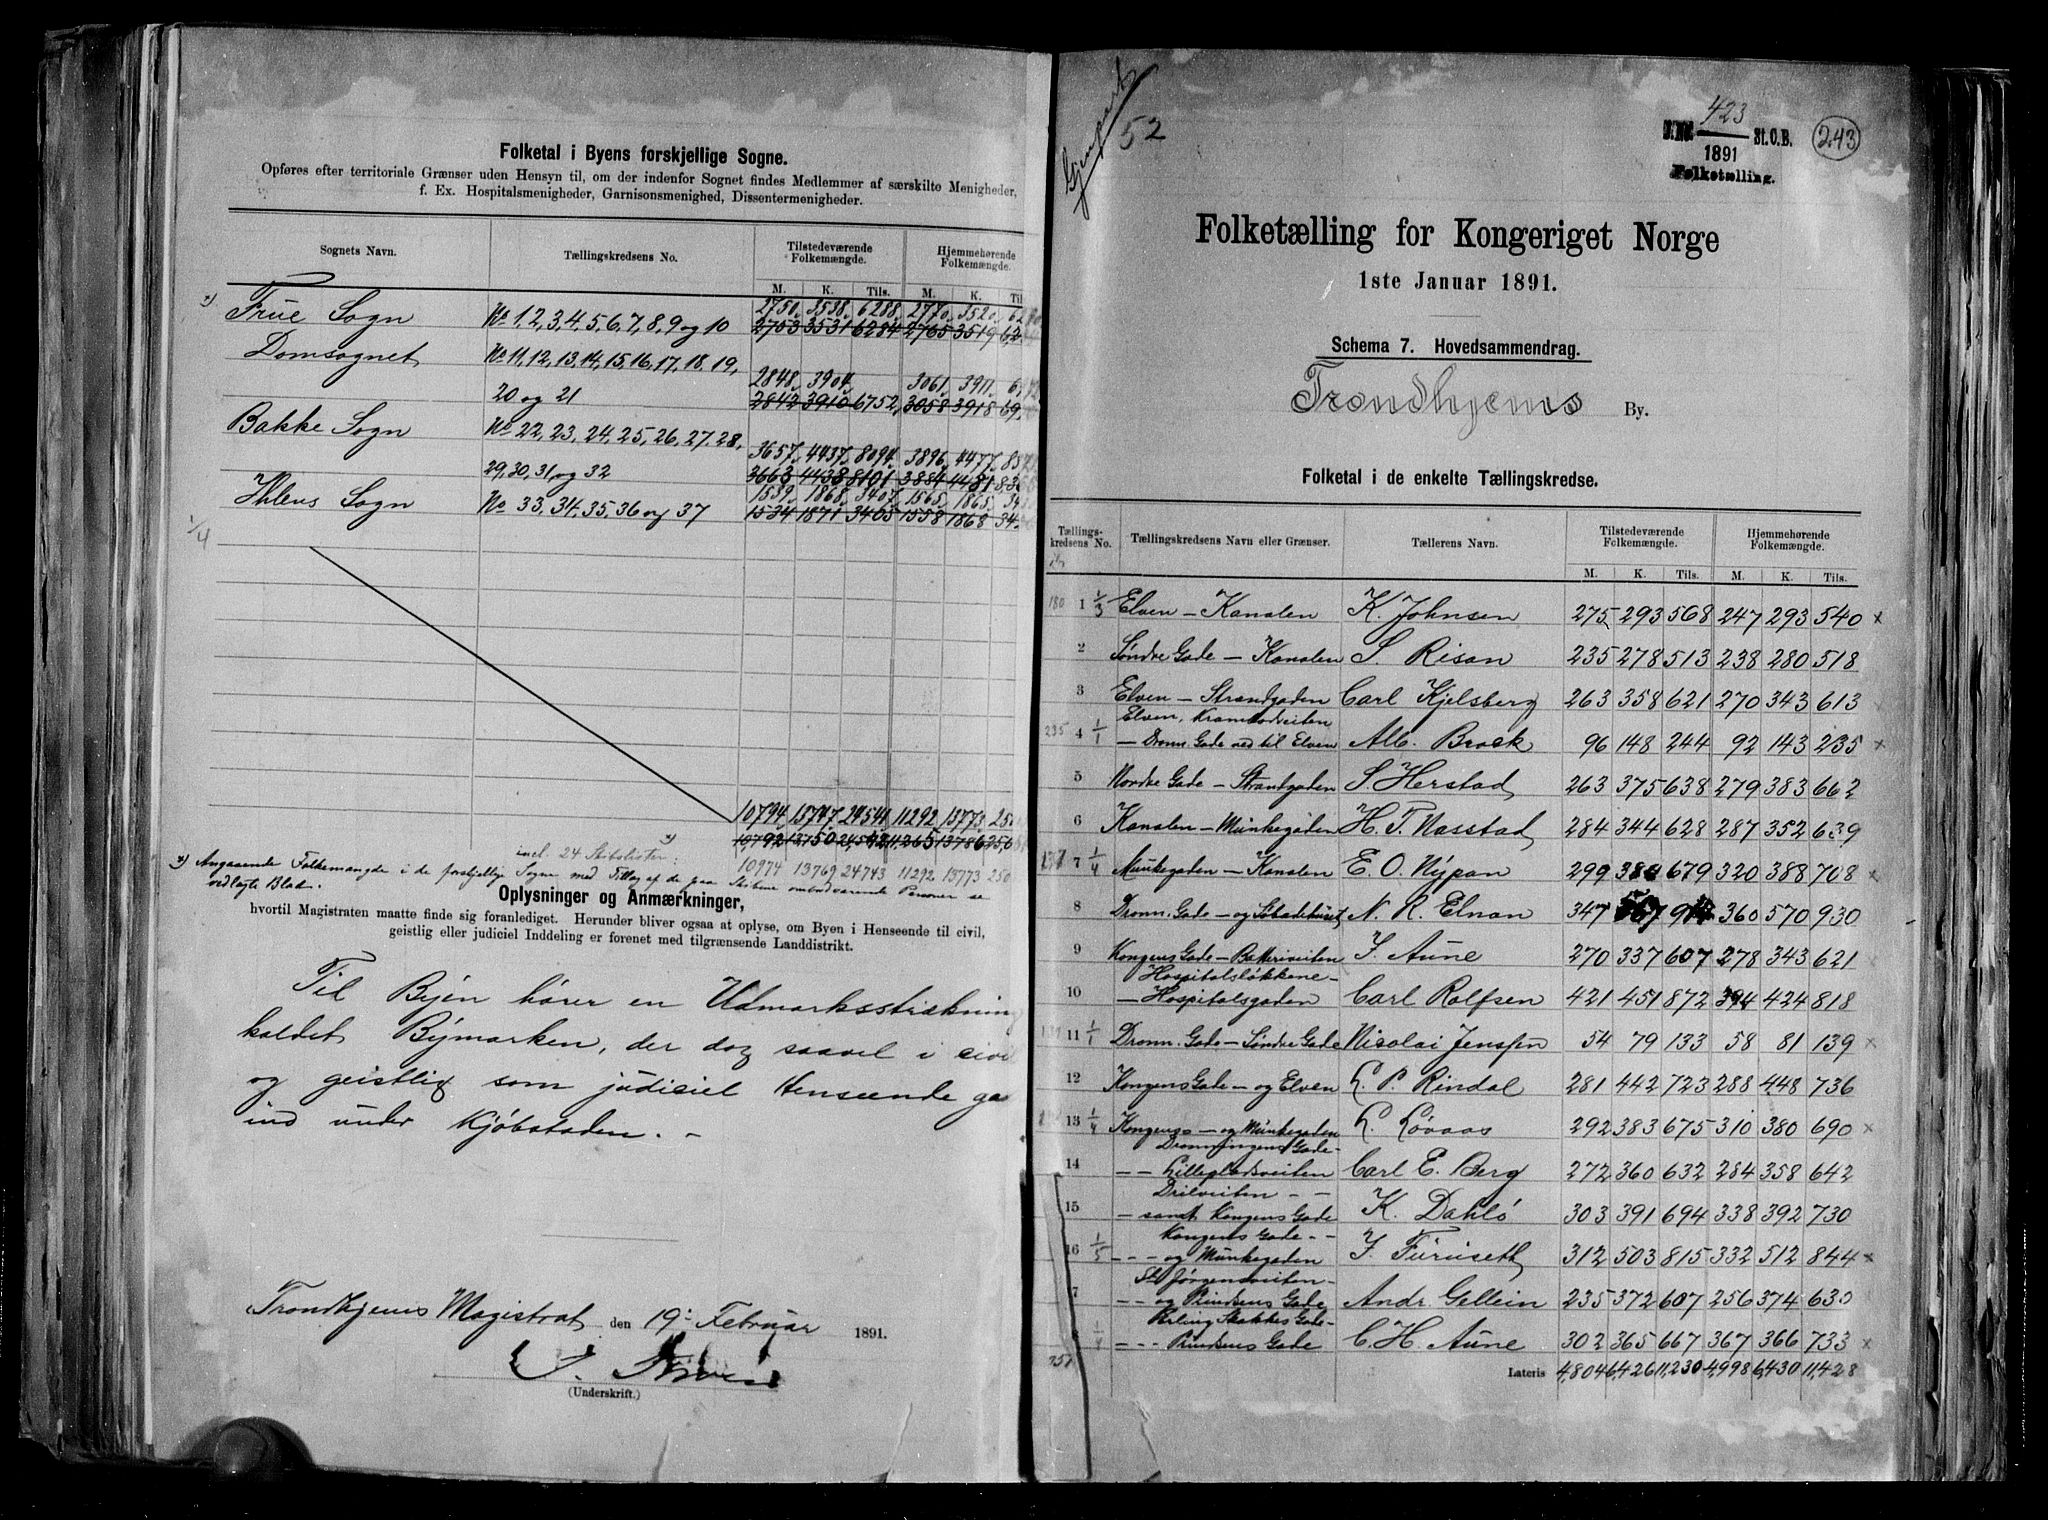 Folketal i Byens forskjellige Sogne.
Opføres efter territoriale Grænser uden Hensyn til, om der indenfor Sognet findes Medlemmer af særskilte Menigheder,
f. Ex. Hospitalsmenigheder, Garnisonsmenighed, Dissentermenigheder.
Sognets Navn. Tællingskredsens No. Tilstedeværende Folkemængde. Hjemmehørende Folkemængde.
M. K. Tils. M. K. Til
2750 3538 6288 2770 3520
Frue Sogn No 1, 2, 3, 4, 5, 6, 7, 8, 9 og 10 2753 3531 6284 2765 3519
Domsognet No 11, 12, 13, 14, 15, 16, 17, 18, 19,
2848 3904 3061 3911
20 og 21 2842 3910 6752 3058 3918
Bakke Sogn No 22, 23, 24, 25, 26, 27, 28,
3657 4437 8094 3896 4477
29, 30, 31, og 32 3663 4438 8101 3884 4481
1539 1868 3407 1565 1865
Ihlens Sogn No 33, 34, 35, 36 og 37 1534 1871 3405 1558 1868
1/4
10794 13747 24541 11292 13773
10792 13750 24,542 11,265 13786
incl. 24 Skibslister: 10974 13769 24743 11292 13773 250
x) Angaaende Folkemængde i de forskjellige Sogne med Tillæg af de paa Skibene ombordværende Personer se
vedlagte Blad.
Oplysninger og Anmærkninger,
hvortil Magistraten maatte finde sig foranlediget. Herunder bliver ogsaa at oplyse, om Byen i Henseende til civil,
geistlig eller judiciel Inddeling er forenet med tilgrænsende Landdistrikt.
Til Byen hører en Udmarksstrækning
kaldet Bymarken, der dog saavel i civil
og geistlig som judiciel Henseende gaar
ind under Kjøbstaden. -
Trondhjems Magistrat den 19. Februar 1891.
(Underskrift.)
Gjenpart
52
J.No. 423 St.O.B.
1891
Folketælling.
243
Folketælling for Kongeriget Norge
1ste Januar 1891.
Schema 7. Hovedsammendrag.
Trondhjems By.
Folketal i de enkelte Tællingskredse.
Tællingskredsens No. Tællingskredsens Navn eller Grænser. Tællerens Navn. Tilstedeværende Folkemængde. Hjemmehørende Folkemængde.
M. K. Tils. M. K. Tils.
180 1 1/3 Elven - Kanalen K. Johnsen 275 293 568 247 293 540 x
2 Søndre Gade - Kanalen S. Risan 235 278 513 238 280 518
3 Elven - Strandgaden Carl Kjelsberg 263 358 621 270 343 613
Elven, Krambodveiten
235 4 1/1 - Dronn. Gade ned til Elven Alb. Brock 96 148 244 92 143 235 x
5 Nordre Gade - Strandgaden S. Herstad 263 375 638 279 383 662
6 Kanalen - Munkegaden H. T. Nasstad 284 344 628 287 352 639
177 7 1/4 Munkegaden - Kanalen E. O. Nypan 299 380 679 320 388 708 x
8 Dronn. Gade - og N. R. Elnan 347 567 914 360 570 930
9 Kongens Gade - Batteriveiten J. Aune 270 337 607 278 343 621
Hospitalsløkkene -
10 - Hospitalsgaden Carl Rolfsen 421 451 872 394 424 818
11 1/1 Dronn. Gade - Søndre Gade Nicolai Jenssen 54 79 133 58 81 139 x
12 Kongens Gade - og Elven L. P. Rindal 281 442 723 288 448 736
13 1/4 Kongens - og Munkegaden L. Løvaas 292 383 675 310 380 690 x
Dronningens Gade -
14 - - Lillegladsveiten Carl E. Berg 272 360 632 284 358 642
Drilveiten - -
15 - samt Kongens Gade K. Dahlø 303 391 694 338 392 730
Kongens Gade - -
16 1/5 - - og Munkegaden J. Furuseth 312 503 815 332 512 844 x
St Jørgensveiten -
7 - - og Prindsens Gade Andr. Gellein 235 372 607 256 374 630
Erling Skakkes Gade -
1/4 - - Prindsens Gade C. H. Aune 302 365 667 367 366 733 x
Lateris 4,804 6,426 11,230 4,998 6,430 11,428